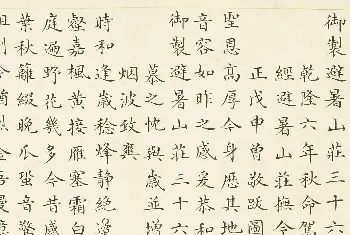 御製避暑山莊三十六
乾隆六年秋命駕
經避暑山莊撫今
正戊申曾敬跋圖
聖恩高厚今身歷其地
音容如昨之感爰恭和
御製避暑山莊三十六
慕之忱與歲並增
烟波致爽
時和逢歲稔烽靜絕邊
壑嘉楓黃接雁塞霜白
庭過野花幾多今昔
葉秋籬綴晚瓜蛩音